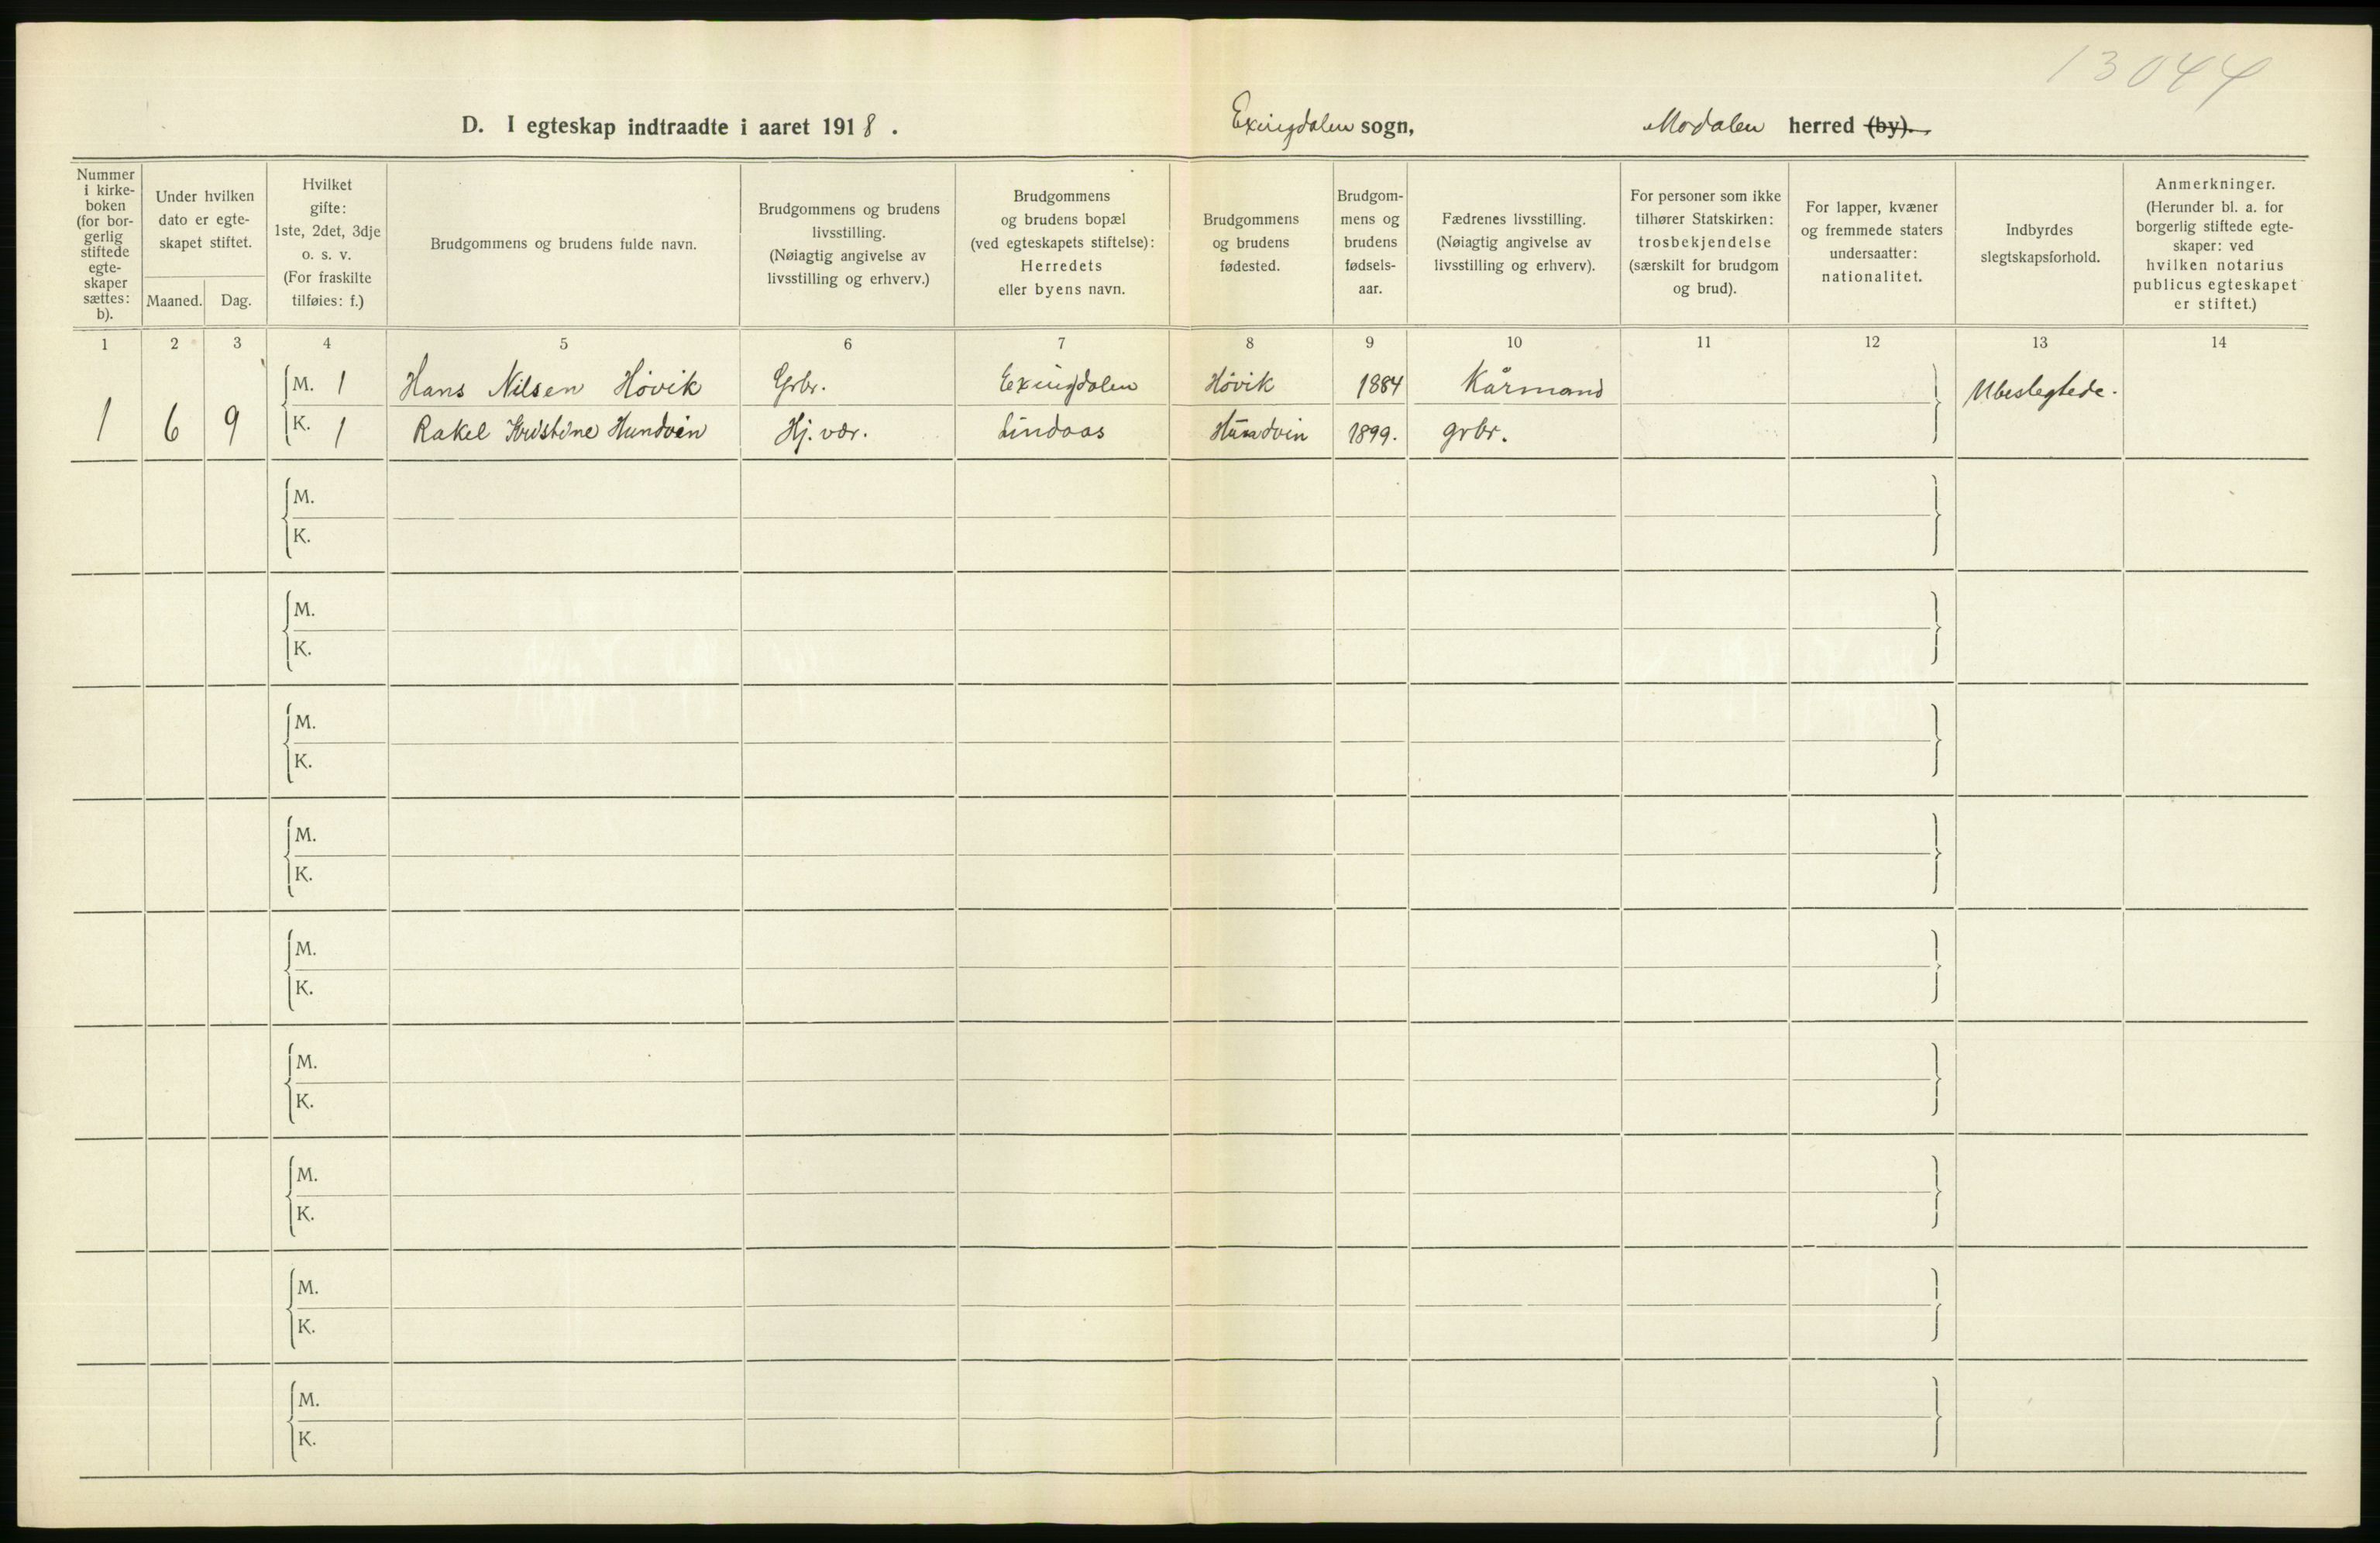 13044
D. I egteskap indtraadte i aaret 1918. Exingdalen sogn, Modalen herred (by).
Nummer i kirke-boken (for bor-gerlig stiftede egte-skaper sættes: b).
Under hvilken dato er egte-skapet stiftet.
Maaned. Dag.
Hvilket gifte: 1ste, 2det, 3dje o. s. v. (For fraskilte tilføies: f.)
Brudgommens og brudens fulde navn.
Brudgommens og brudens livsstilling. (Nøiagtig angivelse av livsstilling og erhverv.)
Brudgommens og brudens bopæl (ved egteskapets stiftelse): Herredets eller byens navn.
Brudgommens og brudens fødested.
Brudgom-mens og brudens fødsels-aar.
Fædrenes livsstilling. (Nøiagtig angivelse av livsstilling og erhverv).
For personer som ikke tilhører Statskirken: trosbekjendelse (særskilt for brudgom og brud).
For lapper, kvæner og fremmede staters undersaatter: nationalitet.
Indbyrdes slegtskapsforhold.
Anmerkninger. (Herunder bl. a. for borgerlig stiftede egte-skaper: ved hvilken notarius publicus egteskapet er stiftet.)
1 2 3 4 5 6 7 8 9 10 11 12 13 14
M. 1 Hans Nilsen Hövik Grbr. Exingdalen Hövik 1884 Kårmand Ubeslegtede.
1 6 9 K. 1 Rakel Kristine Hundvin Hj. vær. Lindaas Hundvin 1899. grbr.
M.
K.
M.
K.
M.
K.
M.
K.
M.
K.
M.
K.
M.
K.
M.
K.
M.
K.